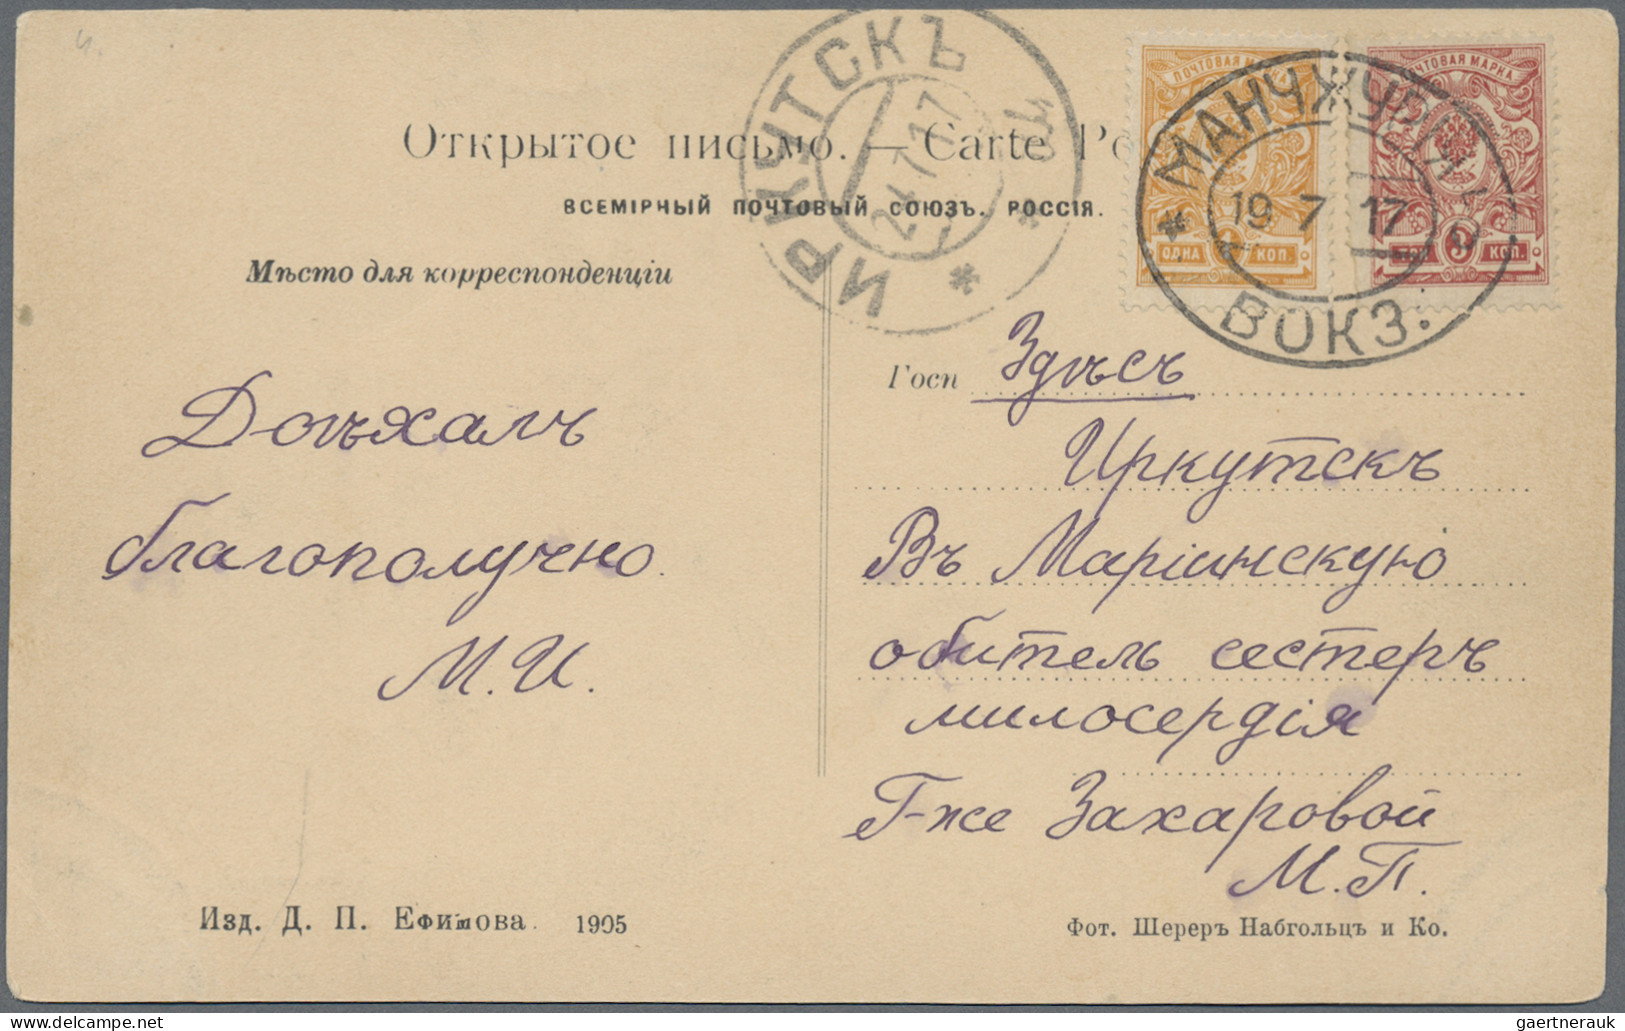 Открытое письмо. — Carte
ВСЕМІРНЫЙ ПОЧТОВЫЙ СОЮЗЪ. РОССІЯ.
Мѣсто для корреспонденціи
ИРКУТСКЪ
24 7 17
ПОЧТОВАЯ МАРКА
ОДНА 1 КОП.
ПОЧТОВАЯ МАРКА
ТРИ 3 КОП.
МАНЧЖУРІЯ
19 7 17
ВОКЗ.
Доѣхалъ
благополучно.
М. И.
Госп Здѣсь
Иркутскъ
Въ Маріинскую
обитель сестеръ
милосердія
Г-же Захаровой
М. П.
Изд. Д. П. Ефимова. 1905
Фот. Шереръ Набгольцъ и Ко.
gaertnerauk